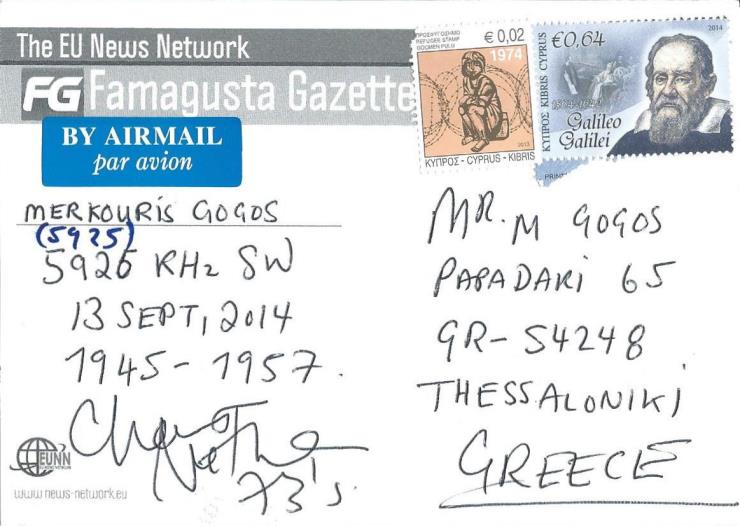 The EU News Network
FG Famagusta Gazette
BY AIRMAIL
par avion
ΠΡΟΣΦΥΓΟΣΗΜΟ
REFUGEE STAMP
GÖÇMEN PULU
€ 0,02
1974
2013
ΚΥΠΡΟΣ - CYPRUS - KIBRIS
€0,64
2014
ΚΥΠΡΟΣ KIBRIS CYPRUS
1564-1642
Galileo
Galilei
MERKOURIS GOGOS
(5925)
5926 KHz SW
13 SEPT, 2014
1945-1957.
73's
EUNN
www news-network.eu
MR. M GOGOS
PAPADAKI 65
GR-54248
THESSALONIKI
GREECE